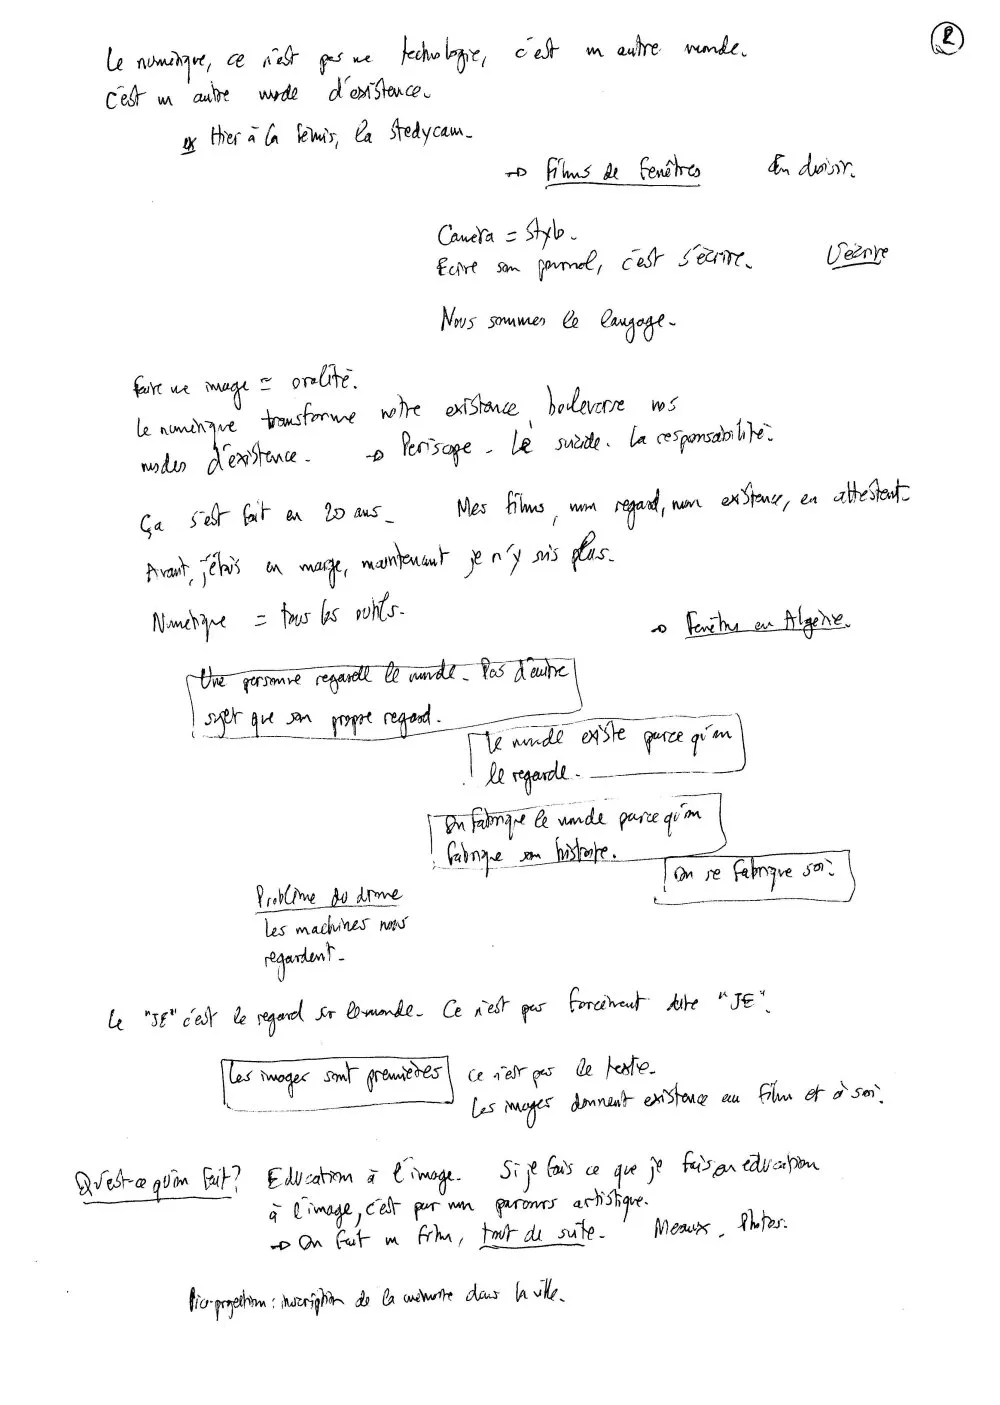 2
Le numérique, ce n'est pas une technologie, c'est un autre monde.
C'est un autre mode d'existence.
ex Hier à la Fémis, la stedycam.
→ Films de fenêtres
Camera = Stylo.
Ecrire son journal, c'est s'écrire.
Nous sommes le langage.
Faire une image = oralité.
Le numérique transforme notre existence, bouleverse nos
modes d'existence. → Periscope - Le suicide. La responsabilité.
Ça s'est fait en 20 ans. Mes films, mon regard, mon existence, en attestent.
Avant, j'étais en marge, maintenant je n'y suis plus.
Numérique = tous les outils.
→ Fenêtres en Algérie.
Une personne regarde le monde. Pas d'autre
sujet que son propre regard.
Le monde existe parce qu'on
le regarde.
On fabrique le monde parce qu'on
fabrique son histoire.
On se fabrique soi.
Problème du drone
Les machines nous
regardent.
Le "JE" c'est le regard sr le monde. Ce n'est pas forcément dire "JE".
Les images sont premières ce n'est pas le texte.
Les images donnent existence au film et à soi.
Qu'est-ce qu'on fait? Education à l'image. Si je fais ce que je fais en education
à l'image, c'est par mon parcours artistique.
→ On fait un film, tout de suite. Meaux. Photos.
Pico-projection : inscription de la mémoire dans la ville.